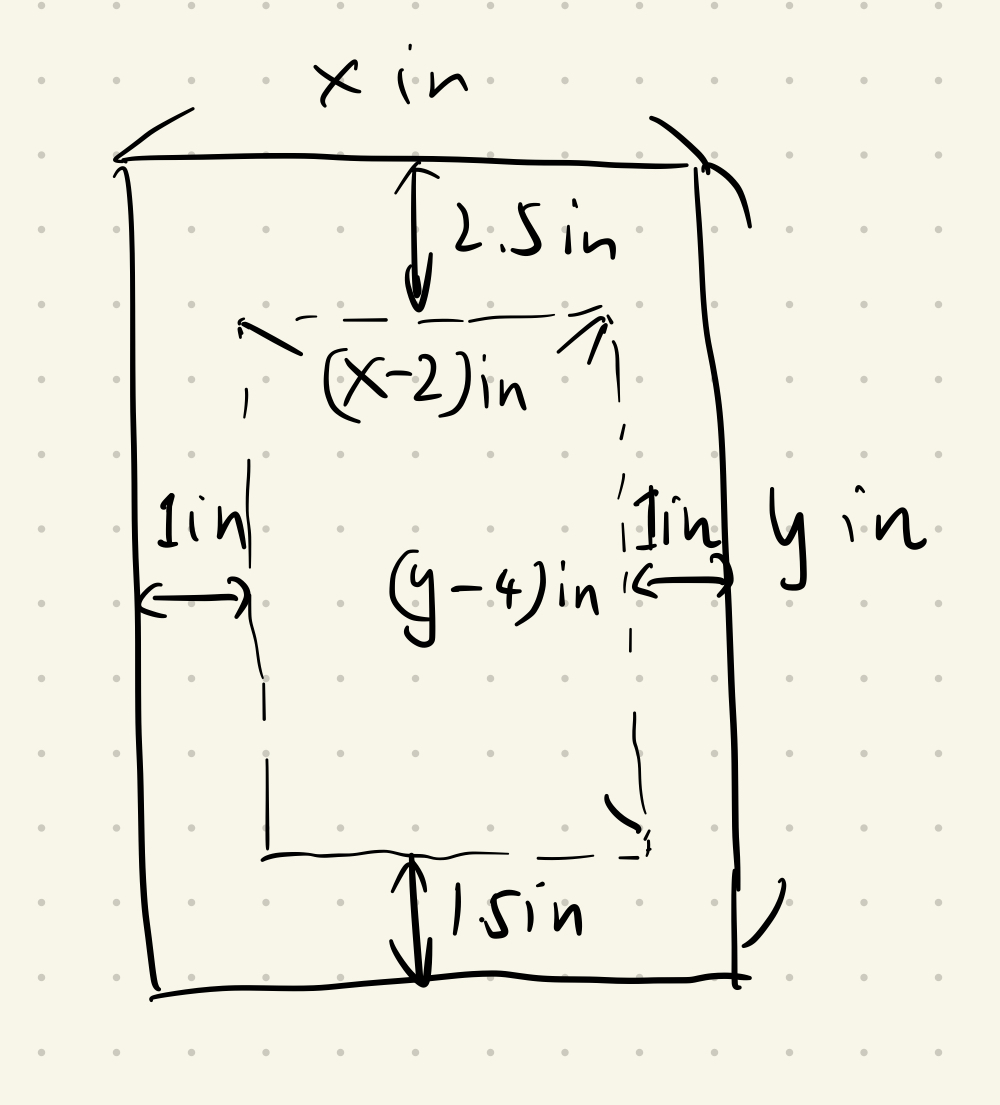 x in
2.5 in
(x-2) in
1 in
1 in
y in
(y-4) in
1.5 in